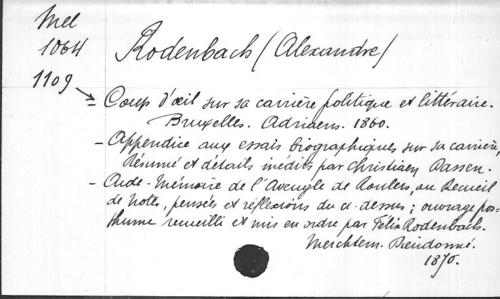 Mel
1064
1109
Rodenbach (Alexandre)
- Coup d'œil sur sa carrière politique et littéraire.
Bruxelles. Adriaens. 1860.
- Appendice aux essais biographiques sur sa carrière,
Résumé et détails inédits par Christiaen Dassen.
- Aide-Mémoire de l'Aveugle de Roulers, ou Recueil
de Notes, pensées et réflexions du ci-dessus; ouvrage pos-
thume recueilli et mis en ordre par Félix Rodenbach.
Merchtem.
1870.